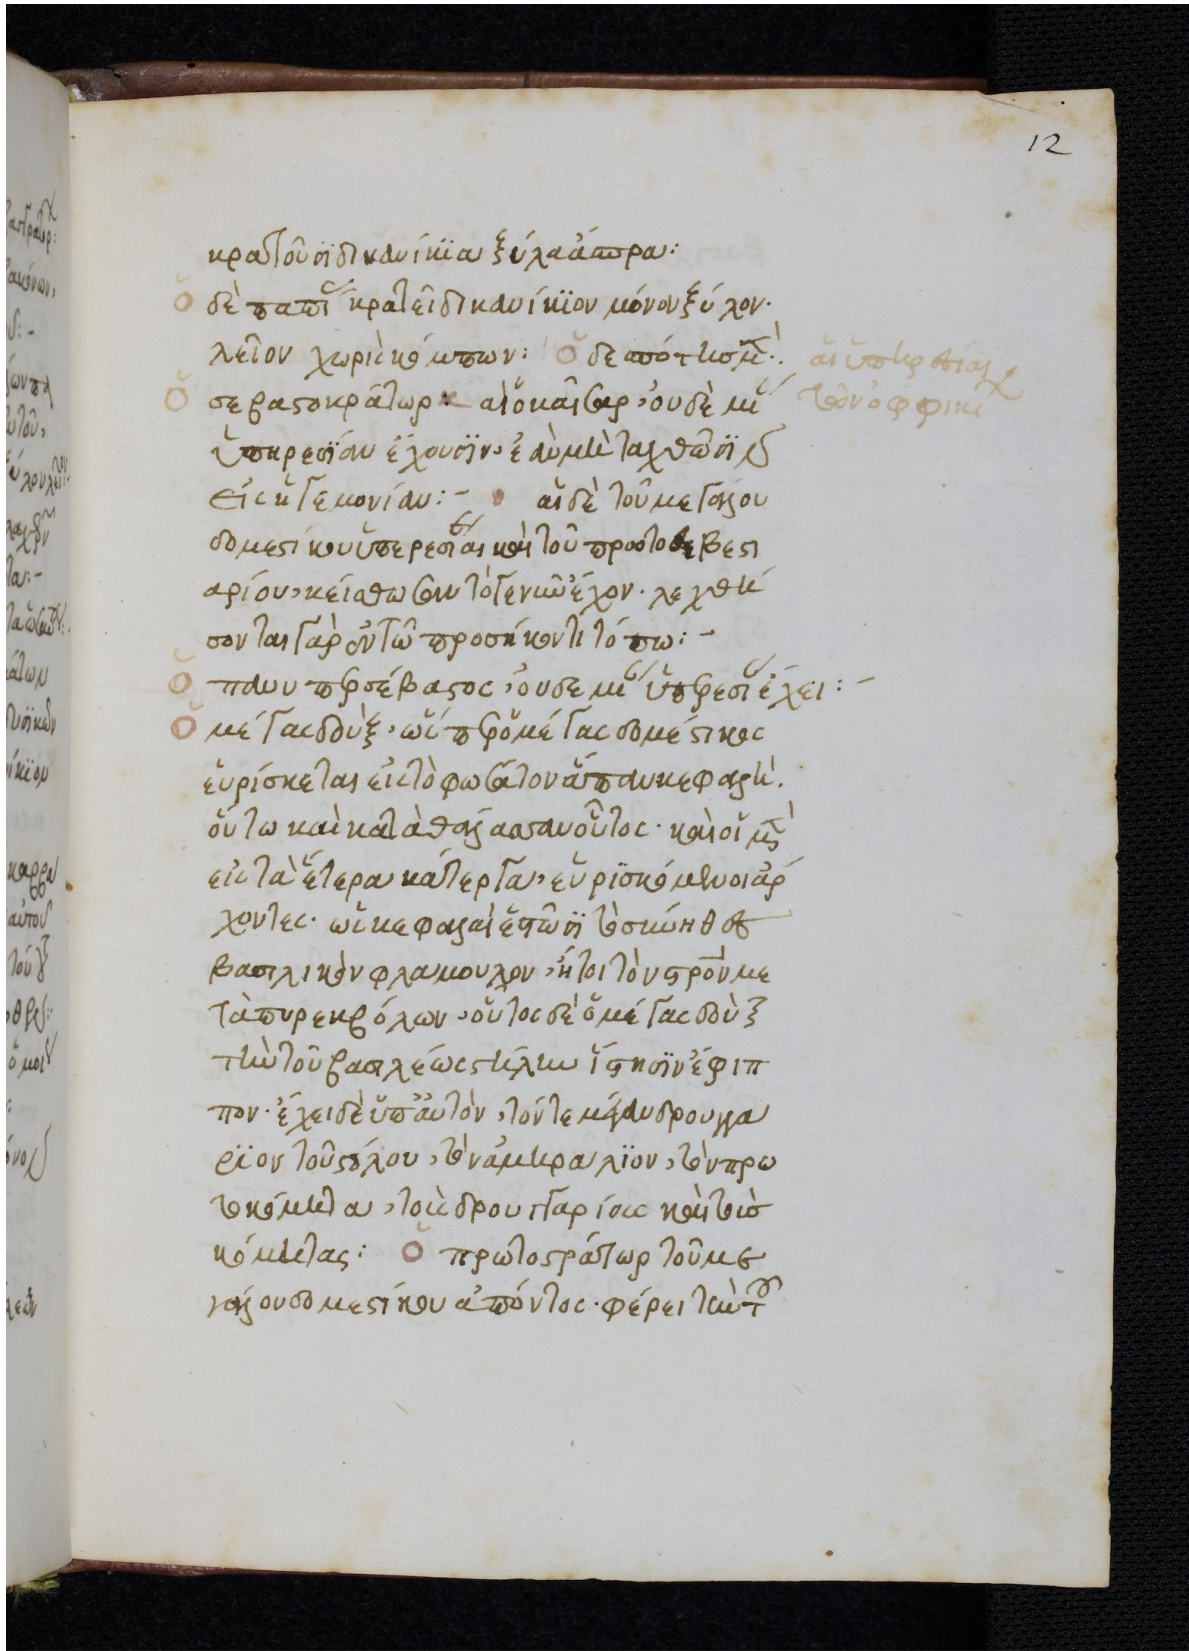 12
κρατοῦσι δικανίκια ξύλα ἄσπρα:
ὁ δὲ παπί κρατεῖ δικανίκιον μόνον ξύλον.
λεῖον χωρὶς κόμπων: ὁ δεσπότης μ:
ὁ σεβαστοκράτωρ καὶ ὁ καῖσαρ, ουδὲ μί
ὑπηρεσίαν ἔχουσιν, ἐὰν μὴ ταχθῶσι
εἰς ἡγεμονίαν: - αἱ δὲ τοῦ μεγάλου
δομεστίκου ὑπερεσίαι καὶ τοῦ πρωτοβεστι
αρίου, κείσθωσαν τὸ γενικὸν ἔχον. λεχθή
σονται γὰρ ἐν τῶ προσήκοντι τόπω: -
ὁ πανυπερσέβαστος, ουδεμί ὑπηρεσί ἔχει: -
ὁ μέγας δοὺξ, ὡς ὑπὲρ ὁ μέγας δομέστικος
εὑρίσκεται εἰς τὸ φωσάτον ἅπαν κεφαλή.
οὕτω καὶ κατὰ θάλασσαν οὗτος. καὶ οἱ μ
εἰς τὰ ἕτερα κάτεργα, εὑρισκόμενοι ἄρ
χοντες. ὡς κεφαλαὶ ἐπῶσι τὸ σκύνηθ
βασιλικὸν φλαμουλον, ἤτοι τὸν στρὸν με
τὰ πυρεκβόλων, οὗτος δὲ ὁ μέγας δοὺξ
τὴν τοῦ βασιλέως στήλην ἵστησιν ἐφιπ
πον. ἔχει δὲ ὑπ' ἀυτὸν, τόν τε μέγαν δρουγγα
ριον τοῦ στόλου, τὸν ἀμηραλιον, τὸν πρω
τοκόμητα, τοὺς δρουγγαρίους καὶ τοὺσ
κόμητας: ὁ πρωτοστράτωρ τοῦ με
γάλου δομεστίκου ἀπόντος. φέρει τὴν τ
αἱ ὑπηρεσίαι
τῶν ὀφφικί